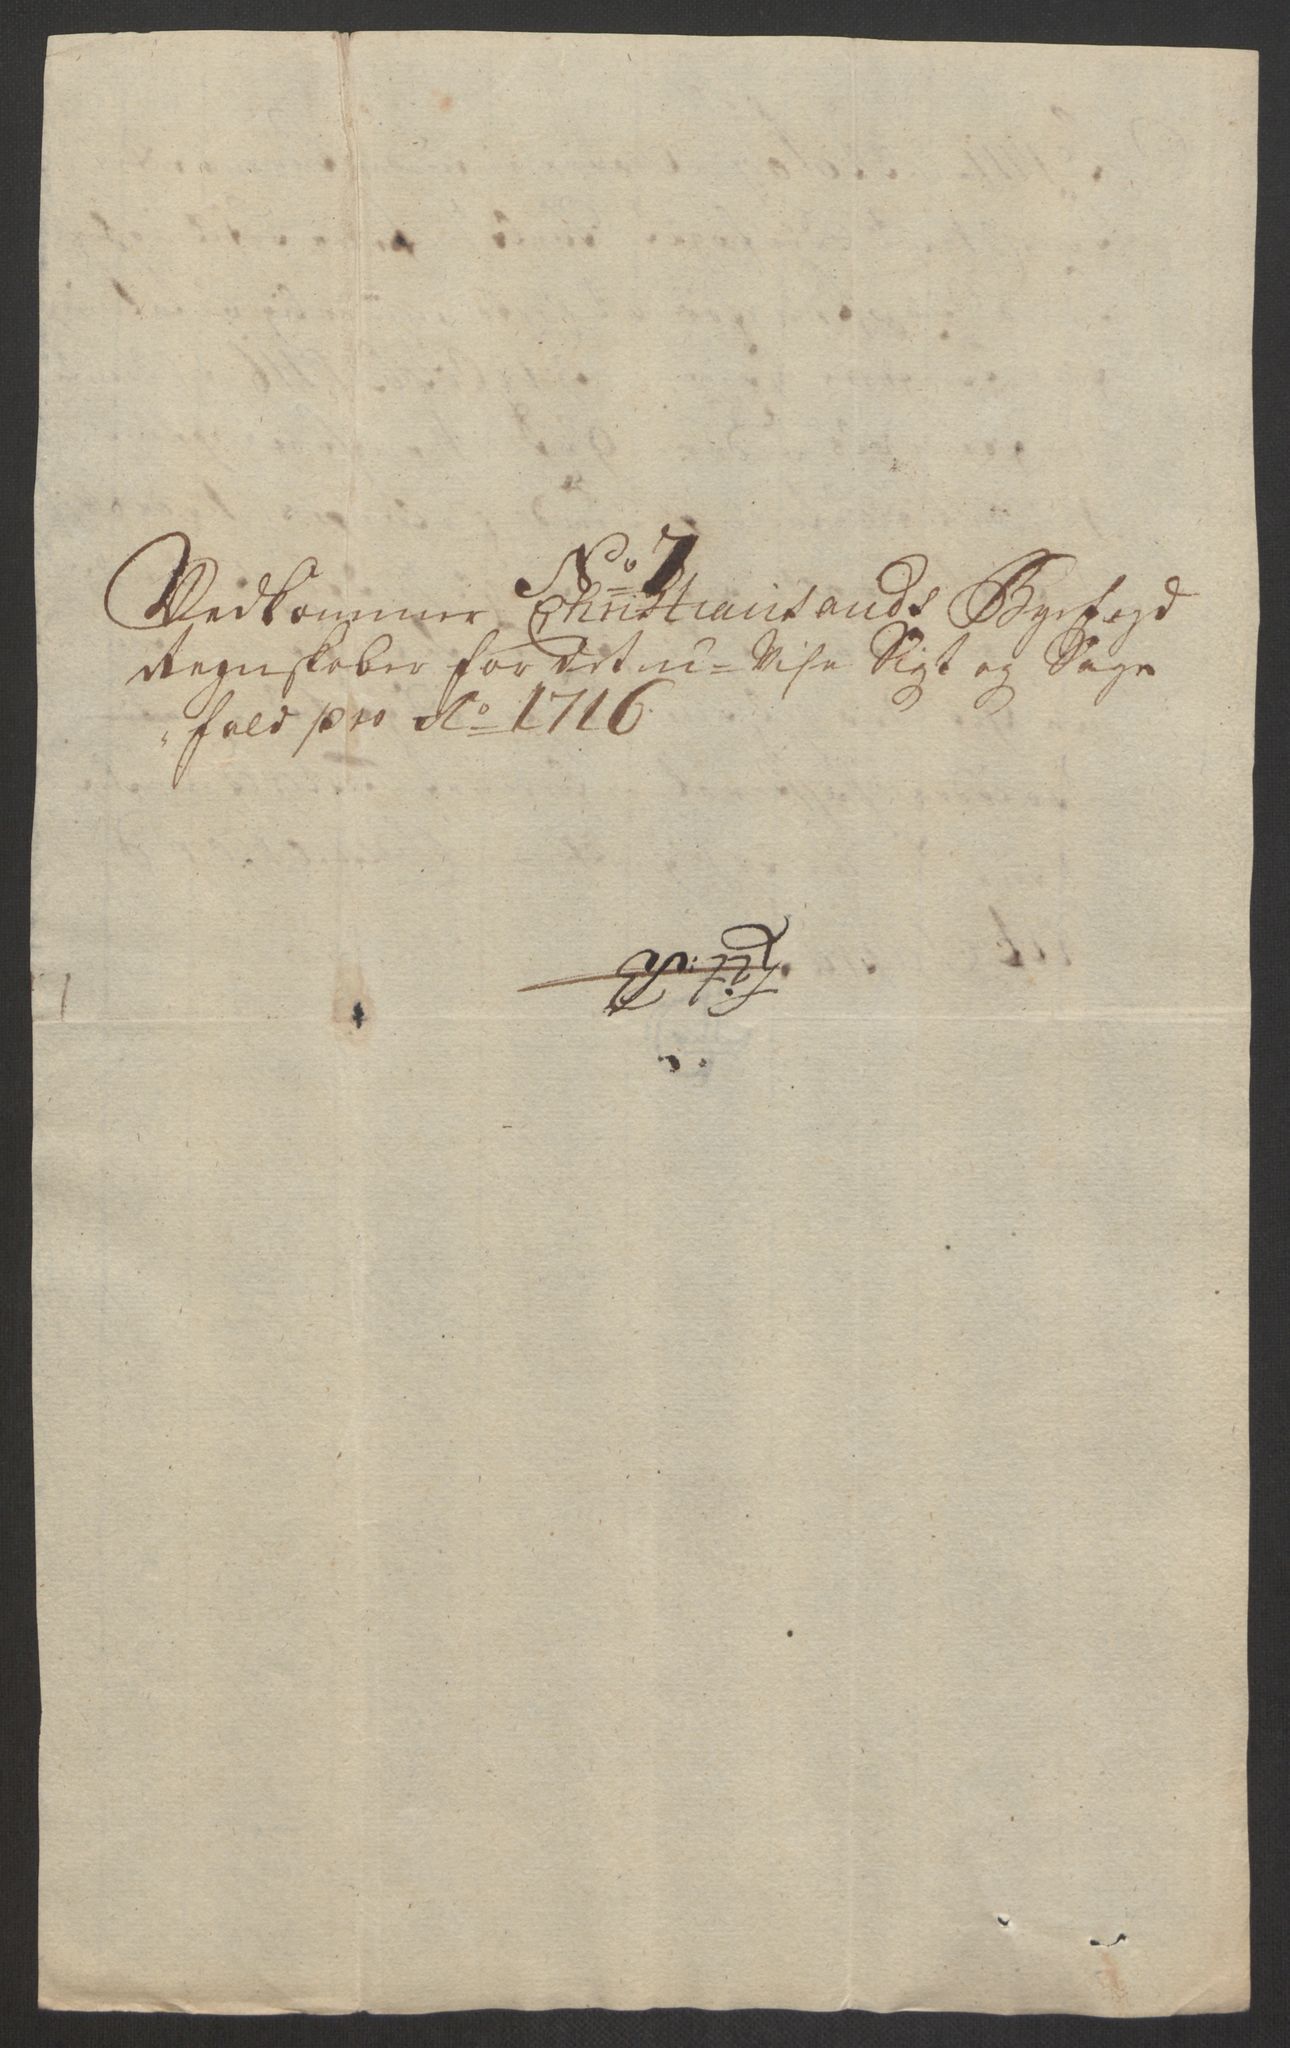 No 7
Vedkommer Christiansands Byefogd
Regnskaber for det u=Vise Sigt og Sage
fald pro Ao 1716
Lit: B